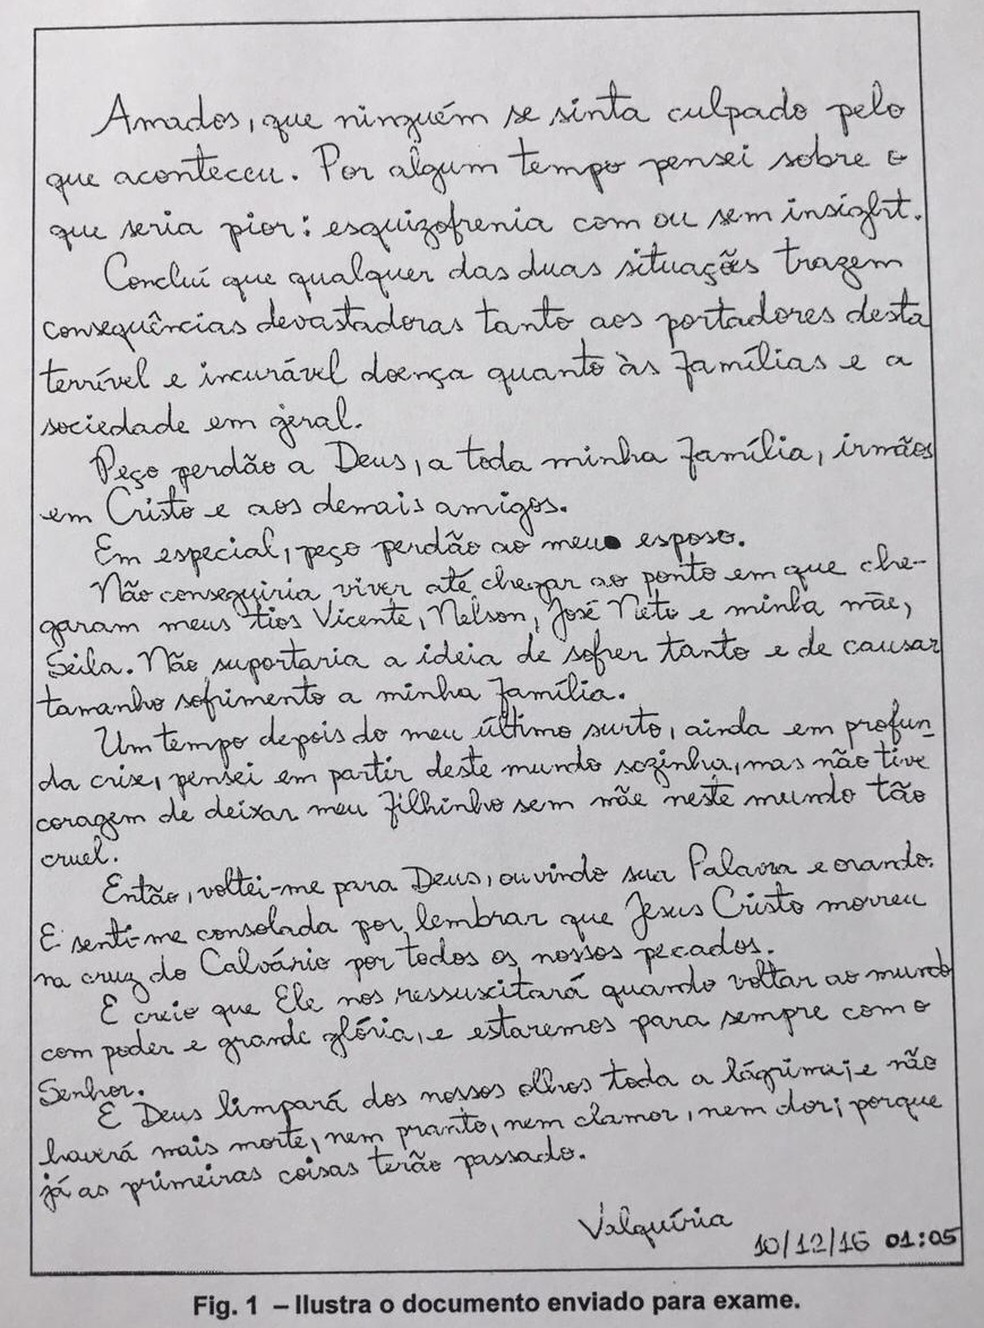 Amados, que ninguém se sinta culpado pelo
que aconteceu. Por algum tempo pensei sobre o
que seria pior: esquizofrenia com ou sem insight.
Concluí que qualquer das duas situações trazem
consequências devastadoras tanto aos portadores desta
terrível e incurável doença quanto às famílias e a
sociedade em geral.
Peço perdão a Deus, a toda minha família, irmãos
em Cristo e aos demais amigos.
Em especial, peço perdão ao meu esposo.
Não conseguiria viver até chegar ao ponto em que che-
garam meus tios Vicente, Nelson, José Neto e minha mãe,
Seila. Não suportaria a ideia de sofrer tanto e de causar
tamanho sofrimento a minha família.
Um tempo depois do meu último surto, ainda em profun-
da crise, pensei em partir deste mundo sozinha, mas não tive
coragem de deixar meu filhinho sem mãe neste mundo tão
cruel.
Então, voltei-me para Deus, ouvindo sua Palavra e orando.
E senti-me consolada por lembrar que Jesus Cristo morreu
na cruz do Calvário por todos os nossos pecados.
E creio que Ele nos ressuscitará quando voltar ao mundo
com poder e grande glória, e estaremos para sempre com o
Senhor.
E Deus limpará dos nossos olhos toda a lágrima; e não
haverá mais morte, nem pranto, nem clamor, nem dor; porque
já as primeiras coisas terão passado.
Valquíria
10/12/16 01:05
Fig. 1 – Ilustra o documento enviado para exame.